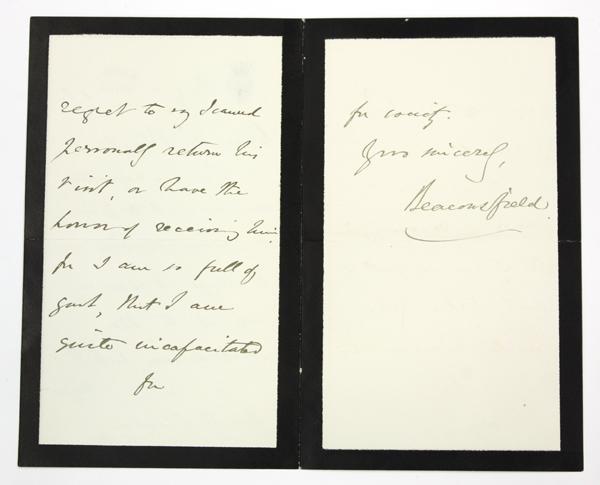 regret to say I cannot
personally return his
visit, or have the
honor of receiving him
for I am so full of
gout, that I am
quite incapacitated
for
for society.
Yours sincerely,
Beaconsfield